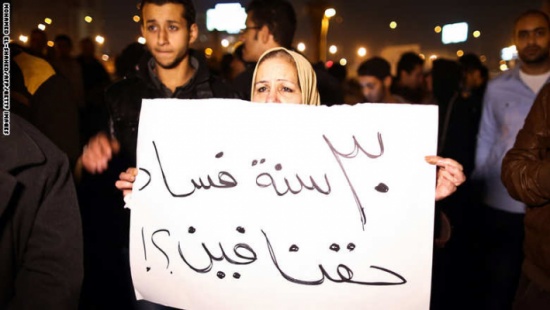 ٣٠ سنة فساد
حقنا فين؟!
MOHAMMED EL-SHAHED/AFP/GETTY IMAGES